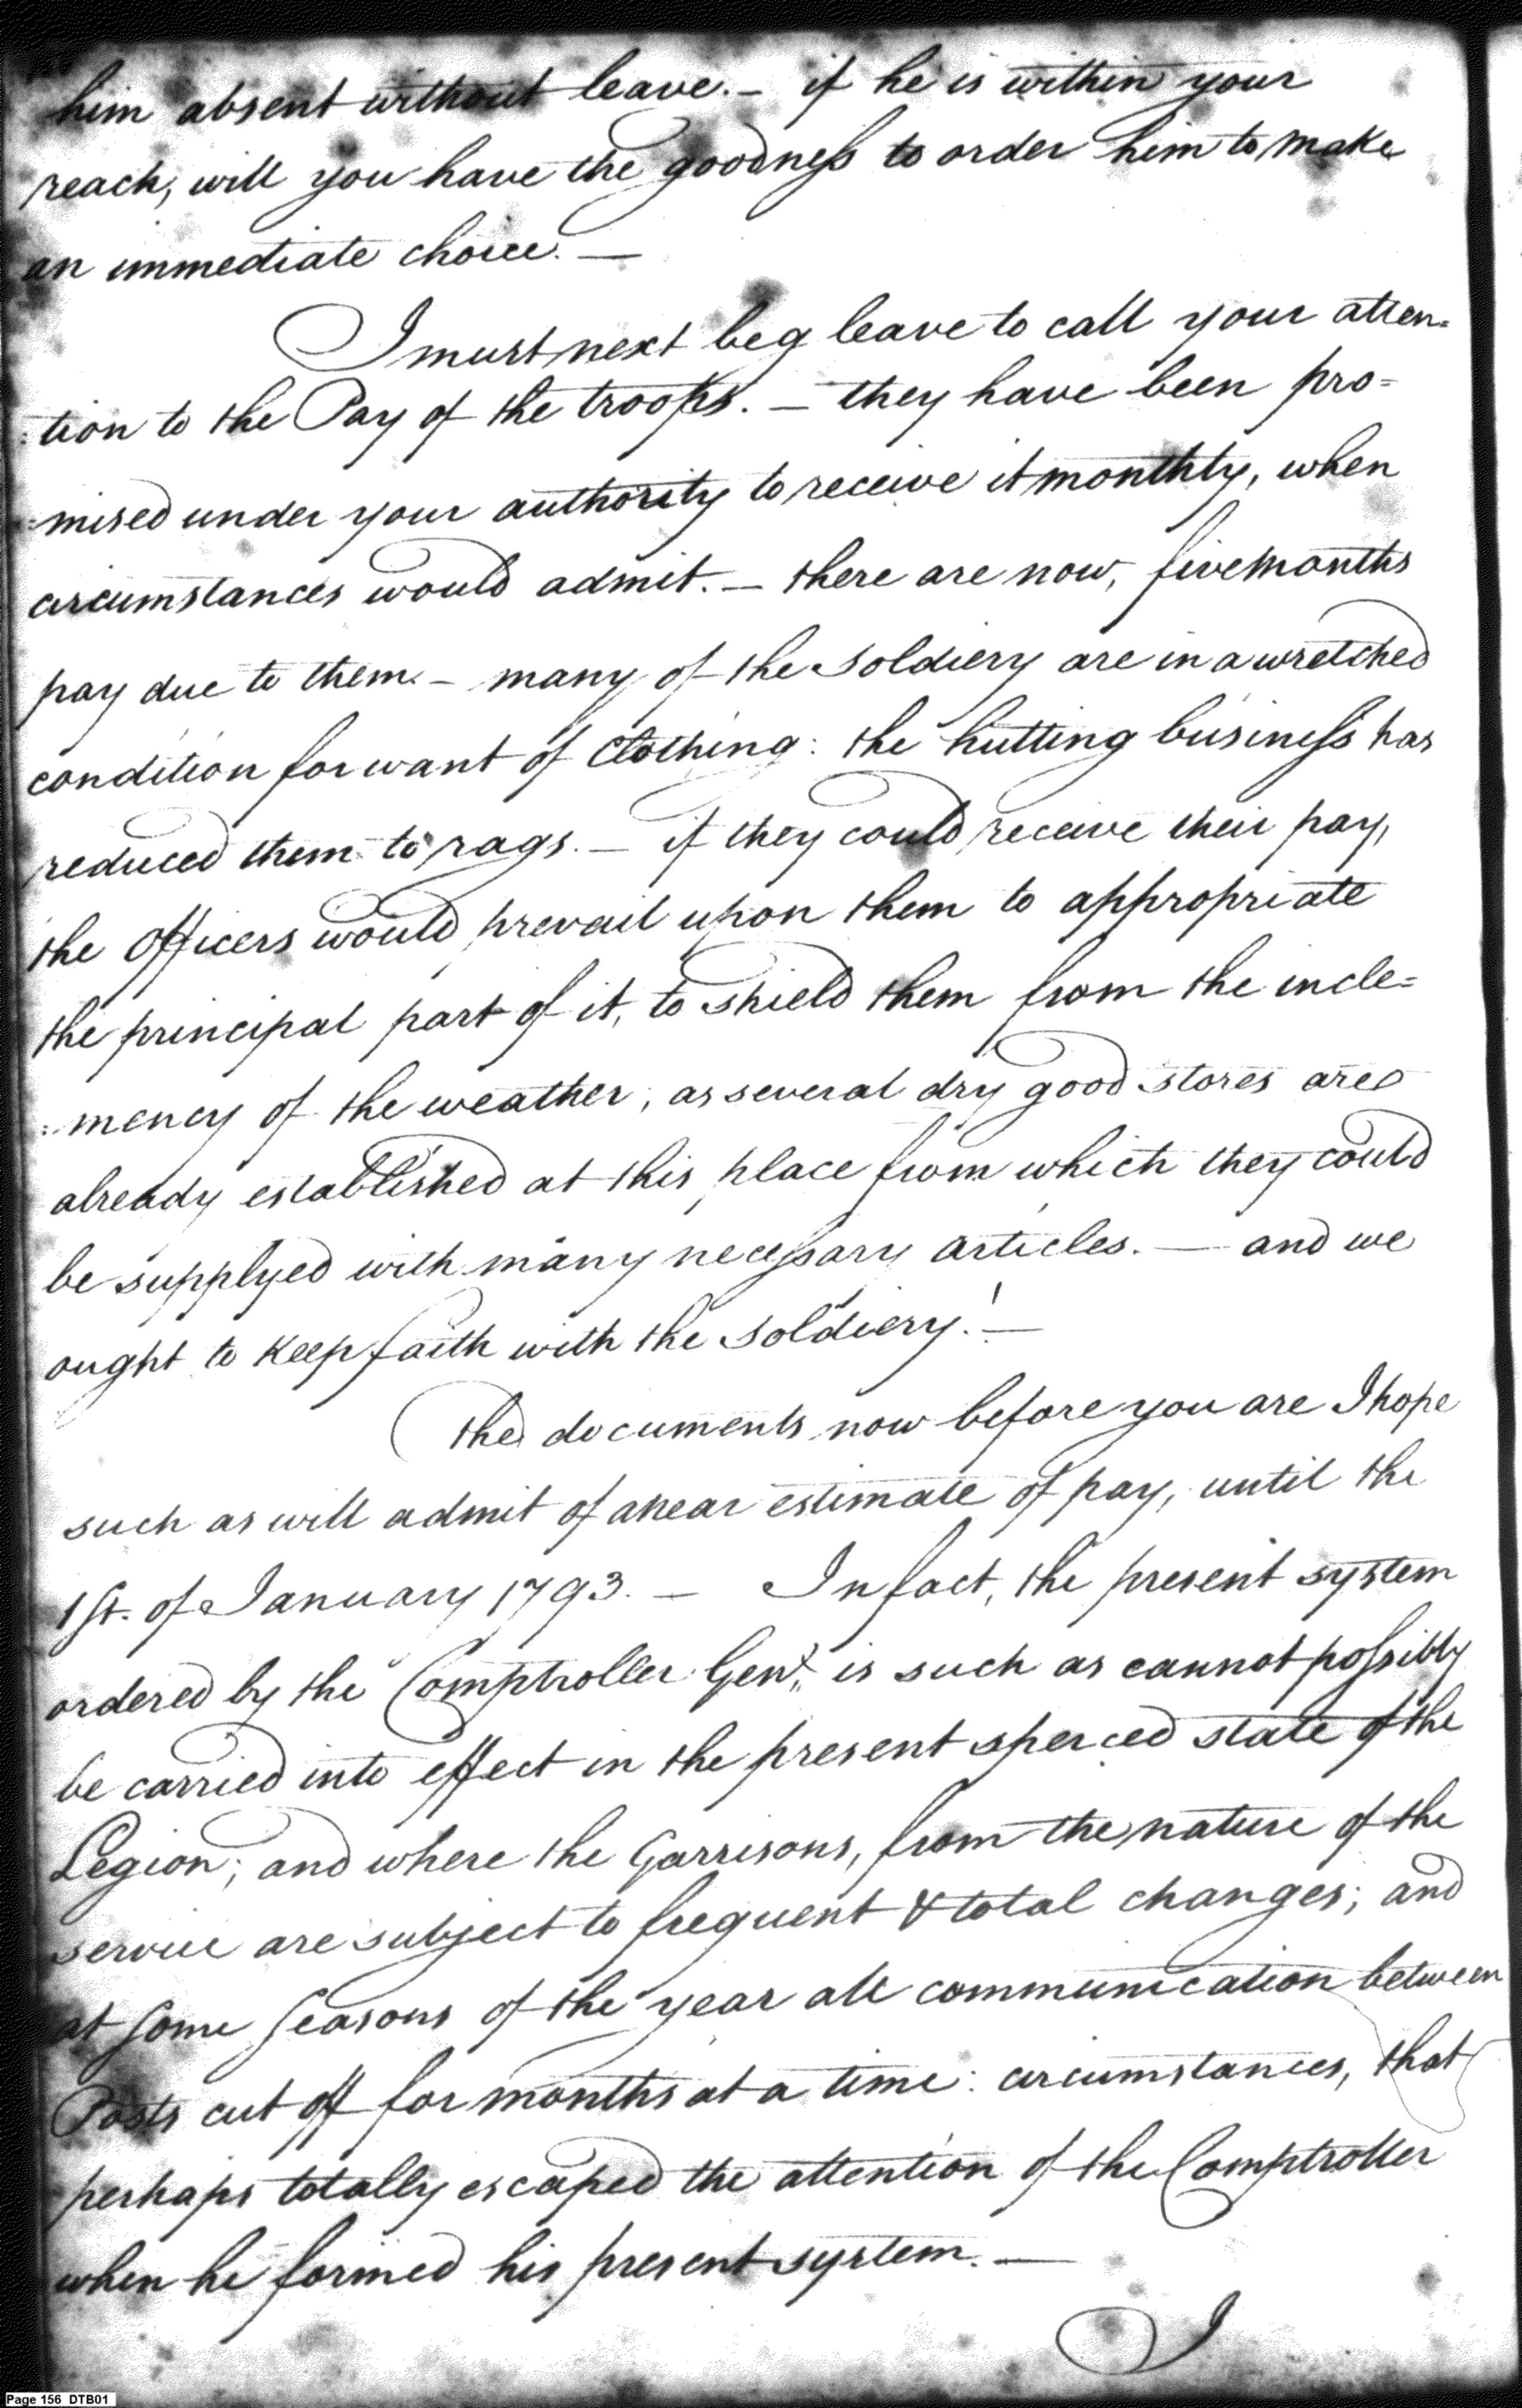 him absent without leave. — if he is within your
reach, will you have the goodness to order him to make
an immediate choice. —
I must next beg leave to call your atten=
=tion to the Pay of the troops. — they have been pro=
=mised under your authority to receive it monthly, when
circumstances would admit. — there are now, five months
pay due to them. — many of the soldiery are in a wretched
condition for want of Clothing: the hutting business has
reduced them to rags. — if they could receive their pay,
the Officers would prevail upon them to appropriate
the principal part of it, to shield them from the incle=
=mency of the weather; as several dry good stores are
already established at this place from which they could
be supplyed with many necessary articles. — and we
ought to keep faith with the soldiery! —
The documents now before you are I hope
such as will admit of a near estimate of pay, until the
1st. of January 1793. — In fact, the present system
ordered by the Comptroller Genl. is such as cannot possibly
be carried into effect in the present sperced state of the
Legion; and where the Garrisons, from the nature of the
service are subject to frequent & total changes; and
at some seasons of the year all communication between
Posts cut off for months at a time: circumstances, that
perhaps totally escaped the attention of the Comptroller
when he formed his present system. —
I
Page 156 DTB01